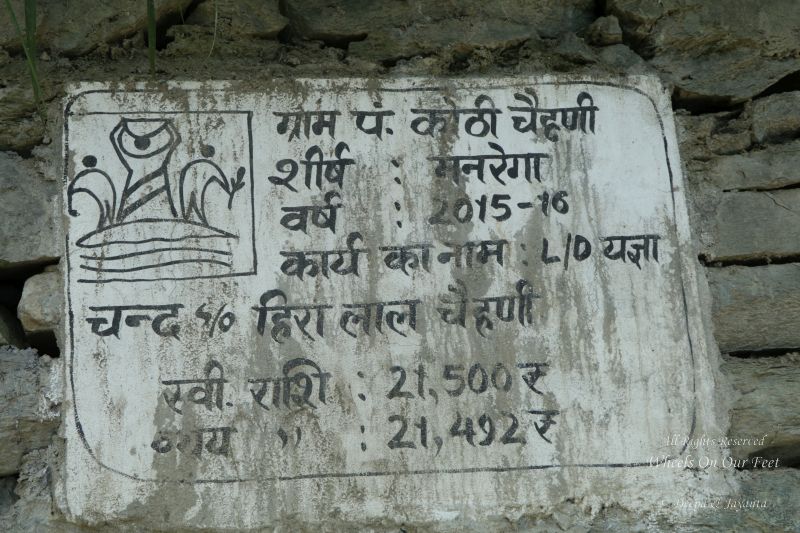 ग्राम पं. कोठी चैहणी
शीर्ष : मनरेगा
वर्ष : 2015-16
कार्य का नाम : L/D यज्ञा
चन्द S/o हिरा लाल चैहणी
स्वी. राशि : 21,500 ₹
व्यय " : 21,492 ₹
All Rights Reserved
Wheels On Our Feet
Deepa & Jayanta